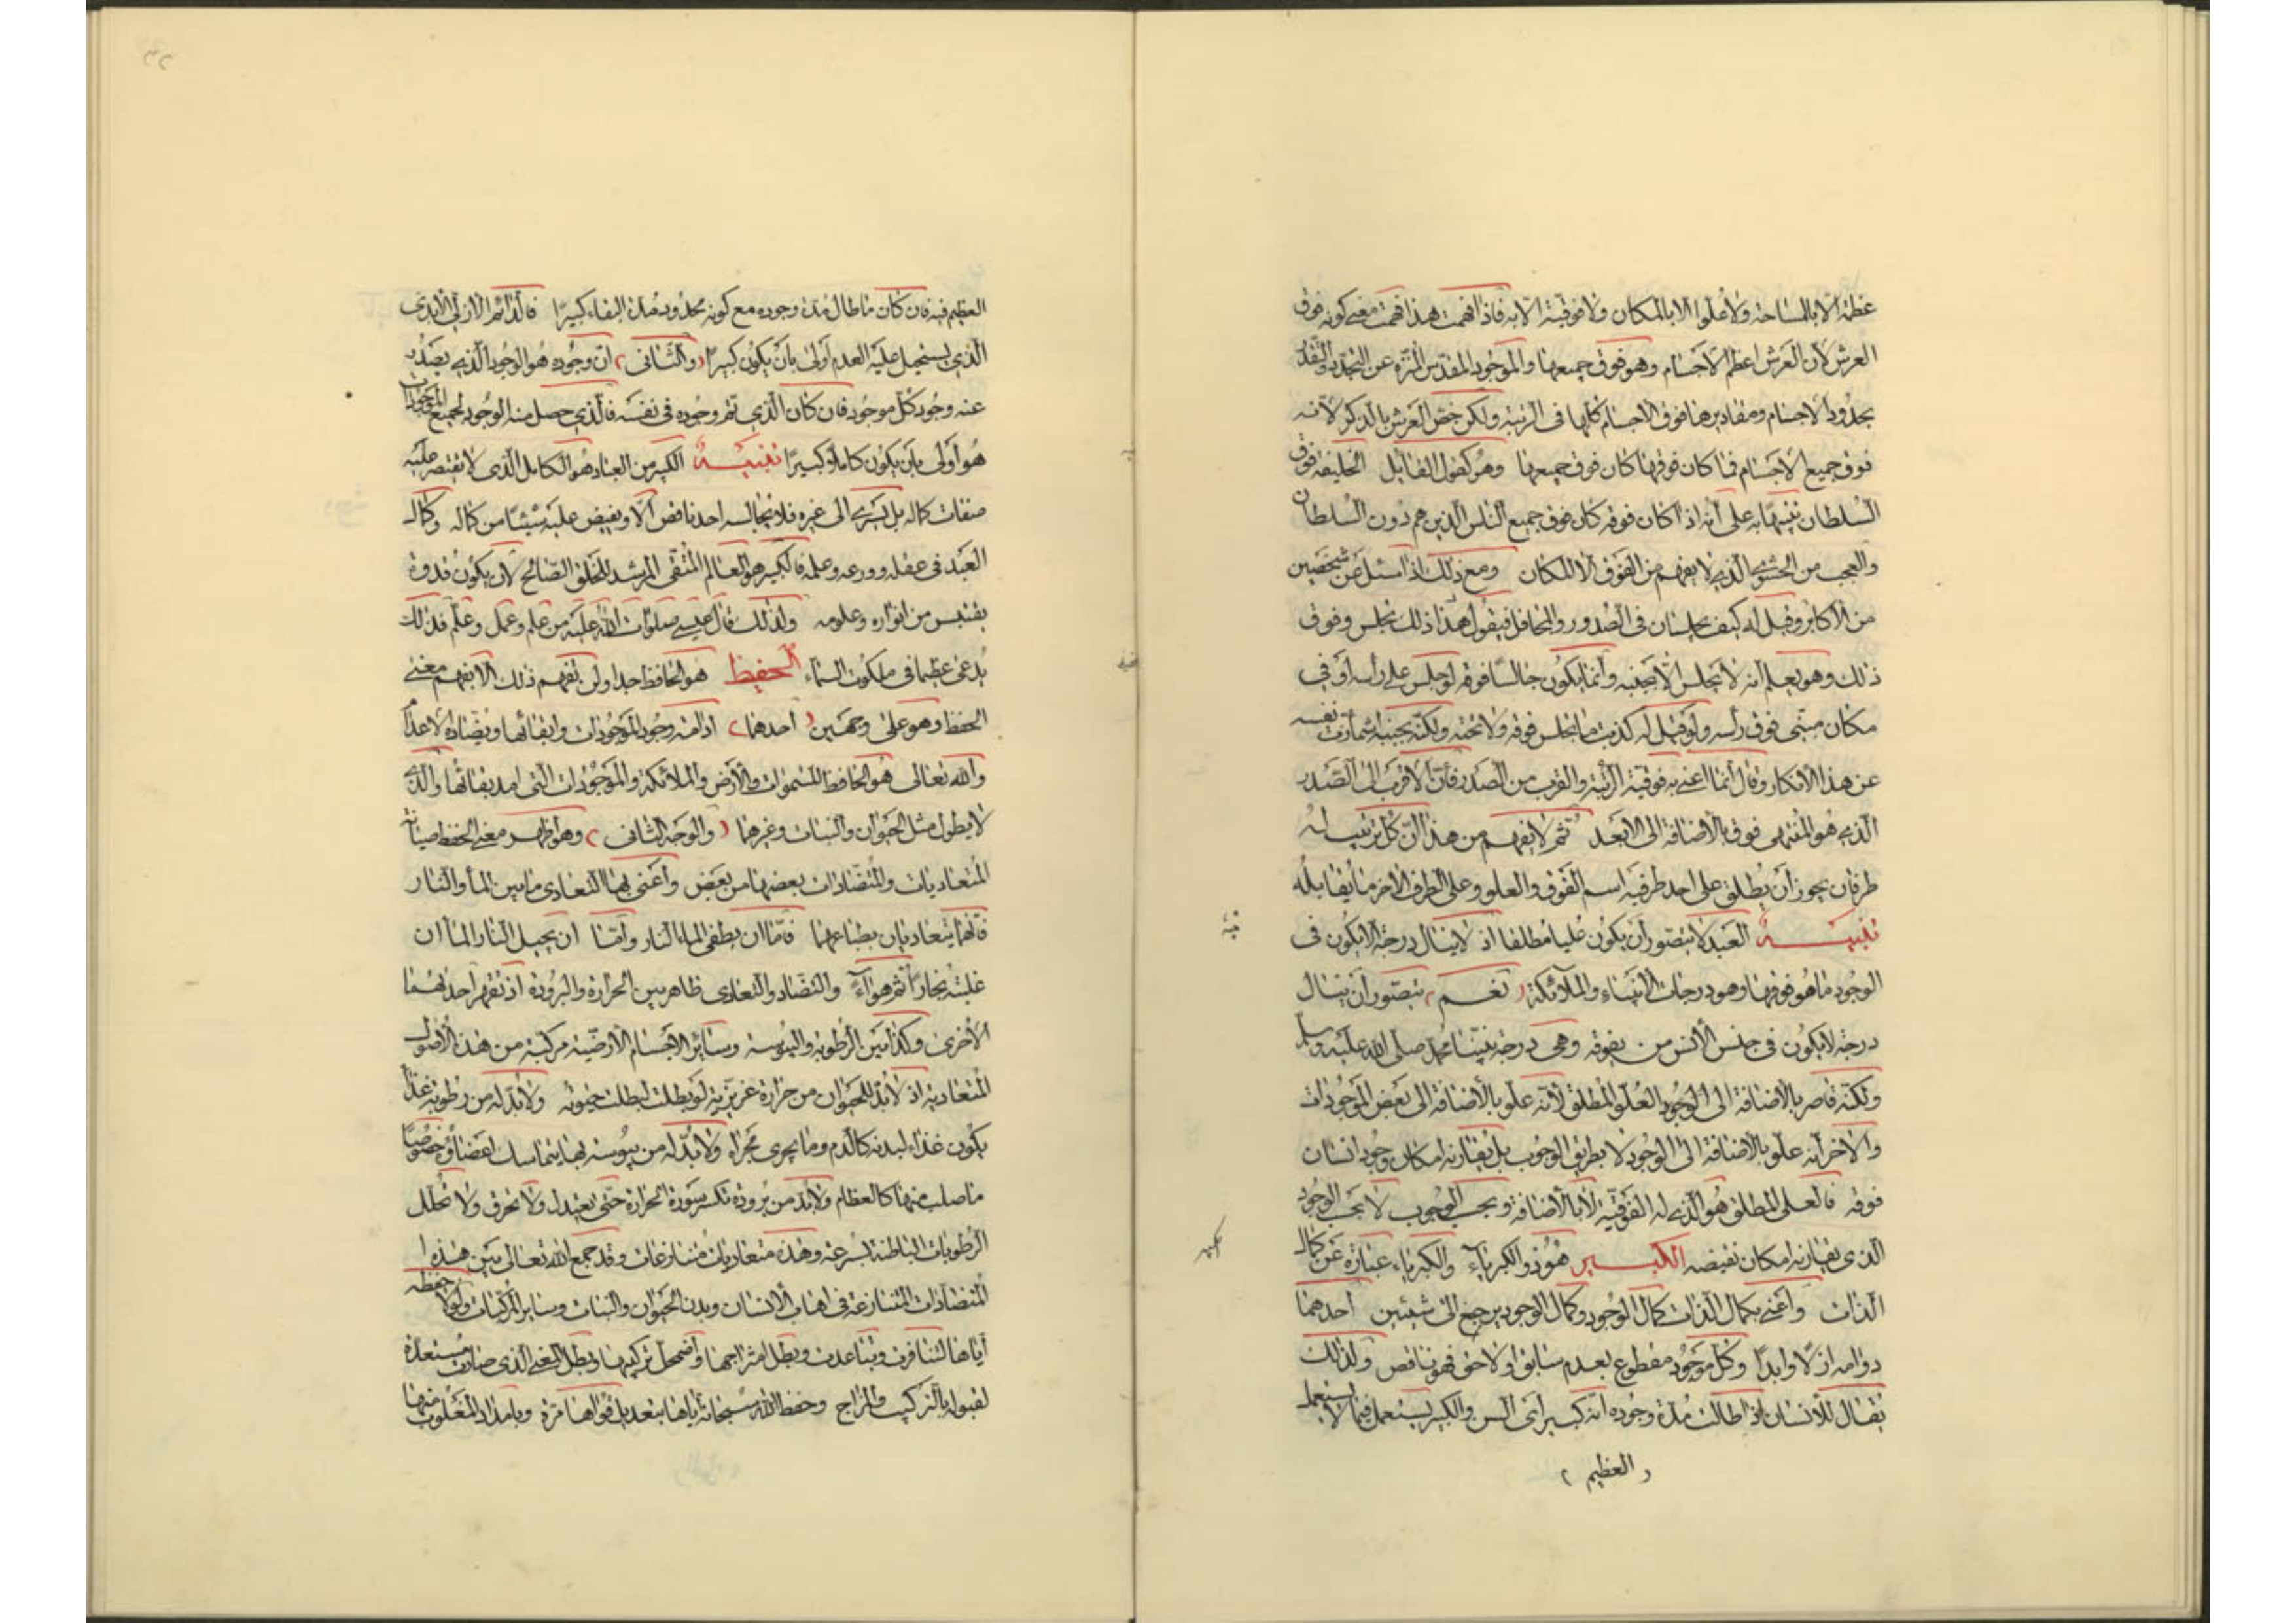 عظمة الا بالمساحة ولا علوا الا بالمكان ولا فوقية الا به فاذا فهمت هذا فهمت معنى كونه فوق
العرش لان العرش اعظم الاجسام وهو فوق جميعها والموجود المقدس المنزه عن التحدد والتقدر
بحدود الاجسام ومقاديرها فوق الاجسام كلها فى الرتبة ولكن خص العرش بالذكر لانه
فوق جميع الاجسام فما كان فوقها كان فوق جميعها وهو كقول القايل الخليفة فوق
السلطان تنبيها به على انه اذا كان فوقه كان فوق جميع الناس الذين هم دون السلطان
والعجب من الحشوى الذى لا يفهم من الفوق الا المكان ومع ذلك اذا سئل عن شخصين
من الاكابر وقيل له كيف يجلسان فى الصدور والمحافل فيقول هذا ذلك يجلس وفوق
ذلك وهو يعلم انه لا يجلس الا بجنبه وانما يكون جالسا فوقه لو جلس على رأسه او فى
مكان مبنى فوق رأسه ولو قيل له كذبت ما يجلس فوقه ولا تحته ولكنه بجنبه اشمأزت نفسه
عن هذا الانكار وقال انما اعنى به فوقية الرتبة والقرب من الصدر فان الاقرب الى الصدر
الذى هو المنتهى فوق بالاضافة الى الابعد ثم لا يفهم من هذا ان كل ترتيب له
طرفان يجوز ان يطلق على احد طرفيه اسم الفوق والعلو وعلى الطرف الاخر ما يقابله
تنبيه العبد لا يتصور ان يكون عليا مطلقا اذ لا ينال درجة الا يكون فى
الوجود ما هو فوقها وهو درجات الانبياء والملائكة (نعم) يتصور ان ينال
درجة لا يكون فى جنس الانس من يفوقه وهى درجة نبينا محمد صلى الله عليه وسلم
ولكنه قاصر بالاضافة الى الوجود العلو المطلق لانه علو بالاضافة الى بعض الموجودات
والاخر انه علو بالاضافة الى الوجود لا بطريق الوجوب بل يقارنه امكان وجود انسان
فوقه فالعلى المطلق هو الذى له الفوقية لا بالاضافة وبحسب الوجوب لا بحسب الوجود
الذى يقارنه امكان نقيضه الكبير هو ذو الكبرياء والكبرياء عبارة عن كمال
الذات واعنى بكمال الذات كمال الوجود وكمال الوجود يرجع الى شيئين احدهما
دوامه ازلا وابدا وكل موجود مقطوع بعدم سابق او لاحق فهو ناقص ولذلك
يقال للانسان اذا طالت مدة وجوده انه كبير اى السن والكبير يستعمل فيما لا يستعمل
(العظيم)
العظيم فيه فان كان ما طال مدة وجوده مع كونه محدود مدة البقاء كبيرا فالدائم الازلى الابدى
الذى يستحيل عليه العدم اولى بان يكون كبيرا (والثانى) ان وجوده هو الوجود الذى يصدر
عنه وجود كل موجود فان كان الذى تم وجوده فى نفسه فالذى حصل منه الوجود لجميع الموجودات
هو اولى بان يكون كاملا وكبيرا تنبيه الكبير من العباد هو الكامل الذى لا تقتصر عليه
صفات كماله بل تسرى الى غيره فلا يجالسه احد ناقص الا ويفيض عليه شيئا من كماله وكمال
العبد فى عقله وورعه وعلمه فالكبير هو العالم المتقى المرشد للخلق الصالح لان يكون قدوة
يقتبس من انواره وعلومه ولذلك قال عيسى صلوات الله عليه من علم وعمل وعلم فذلك
يدعى عظيما فى ملكوت السماء الحفيظ هو الحافظ جدا ولن تفهم ذلك الا بفهم معنى
الحفظ وهو على وجهين (احدهما) ادامة وجود الموجودات وابقائها ويضاده الاعدام
والله تعالى هو الحافظ للسموات والارض والملائكة والموجودات التى امد بقائها والذى
لا يطول مثل الحيوان والنبات وغيرهما (والوجه الثانى) وهو اظهر معنى الحفظ صيانة
المتعاديات والمتضادات بعضها من بعض واعنى بها التعادى ما بين الماء والنار
فانهما يتعاديان بطباعهما فاما ان يطفى الماء النار واما ان يحيل النار الماء ان
غلبته بخارا ثم هواء والتضاد والتعادى ظاهر بين الحرارة والبرودة اذ تقهر احدهما
الاخرى وكذا بين الرطوبة واليبوسة وسائر الاجسام الارضية مركبة من هذه الاصول
المتعادية اذ لا بد للحيوان من حرارة غريزية لو بطلت لبطلت حيوته ولا بد له من رطوبة
يكون غذاء لبدنه كالدم وما يجرى مجراه ولا بد له من يبوسة بها يتماسك اعضاؤه خصوصا
ما صلب منها كالعظام ولا بد من برودة تكسر سورة الحرارة حتى تعتدل ولا تحرق ولا تحلل
الرطوبات الباطنة بسرعة وهذه متعاديات متنازعات وقد جمع الله تعالى بين هذه
المتضادات المتنازعة فى اهاب الانسان وبدن الحيوان والنبات وساير المركبات ولولا حفظه
اياها لتنافرت وتباعدت وبطل امتزاجها واضمحل تركيبها وبطل المعنى الذى صارت مستعدة
لقبوله بالتركيب والمزاج وحفظ الله سبحانه اياها بتعديل قواها مرة وبامداد المغلوب منها